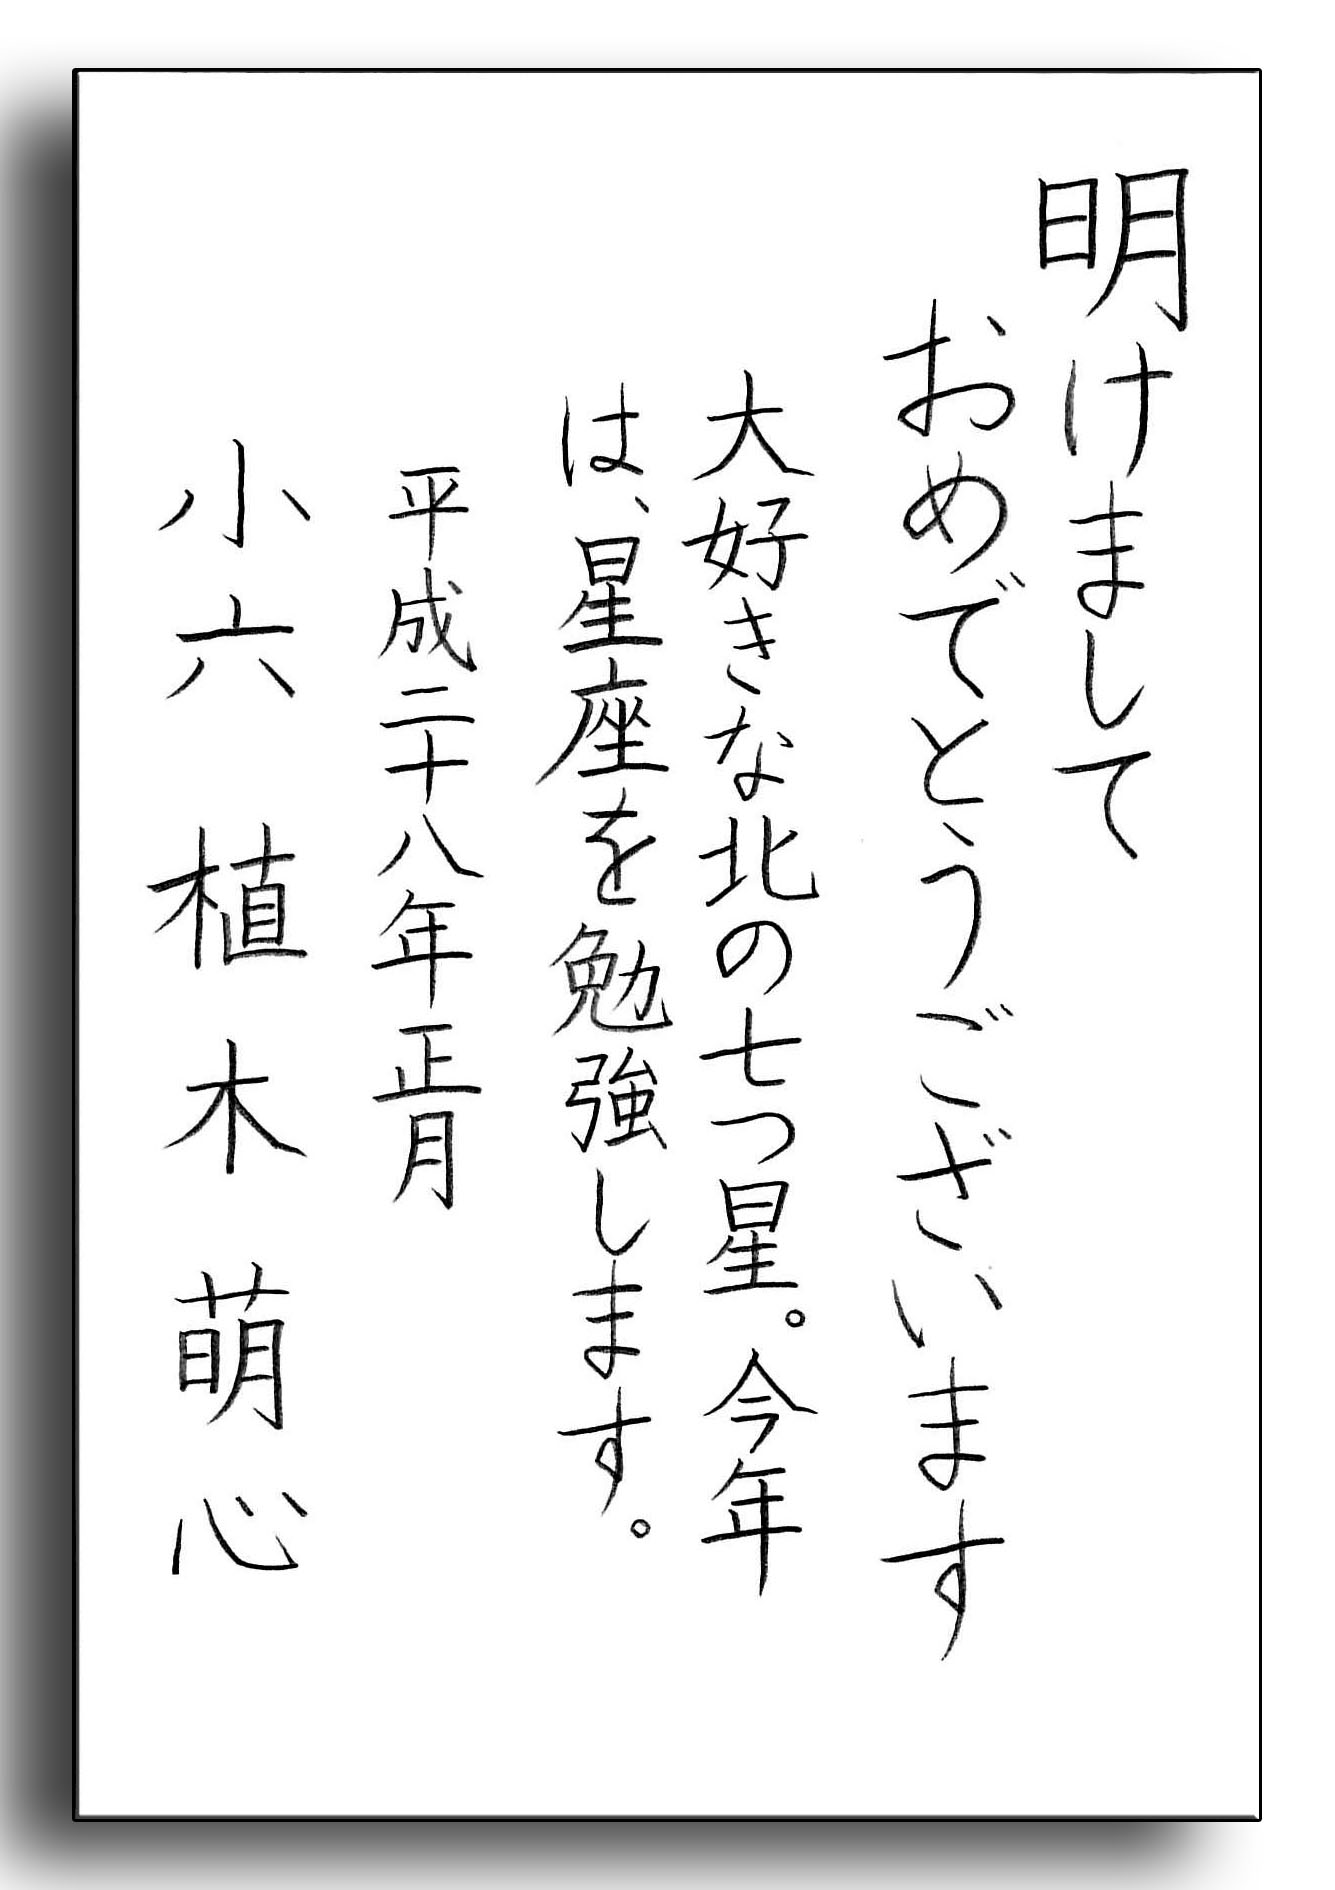 明けまして
おめでとうございます
大好きな北の七つ星。今年
は、星座を勉強します。
平成二十八年正月
小六 植木萌心